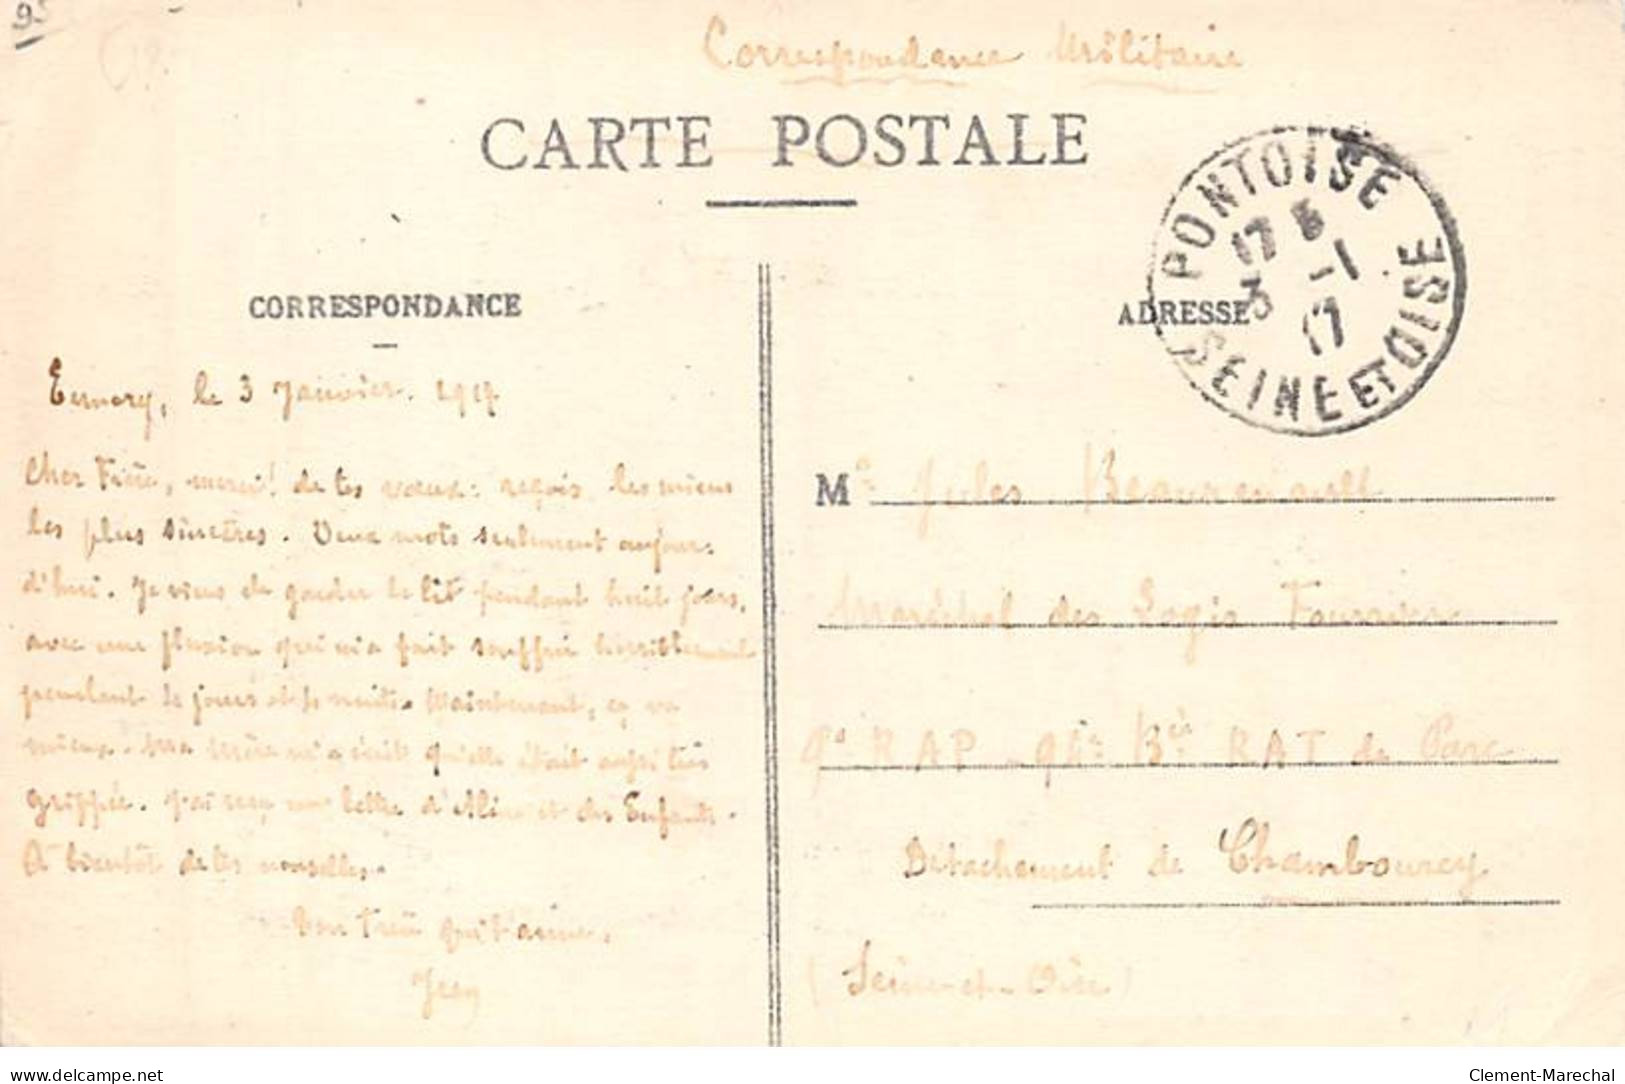 95
Correspondance Militaire
CARTE POSTALE
PONTOISE
17
3 -1
17
SEINE ET OISE
CORRESPONDANCE
ADRESSE
le 3 Janvier. 1917
Cher Frère, merci! de tes vœux: reçois les miens
les plus sincères. Deux mots seulement aujour-
d'hui. Je viens de garder le lit pendant huit jours,
avec une fluxion qui m'a fait souffrir horriblement
pendant jours et nuits. Maintenant, ça va
mieux. Ma mère m'a écrit qu'elle était aussi très
grippée. J'ai reçu une lettre d'Aline et des Enfants.
A bientôt de tes nouvelles.
Ton frère qui t'aime.
M. Jules
Maréchal des Logis Fourrier
9e RAP - 94e Bie RAT de Parc
Détachement de Chambourcy
(Seine-et-Oise)
delcampe.net
Clement-Marechal